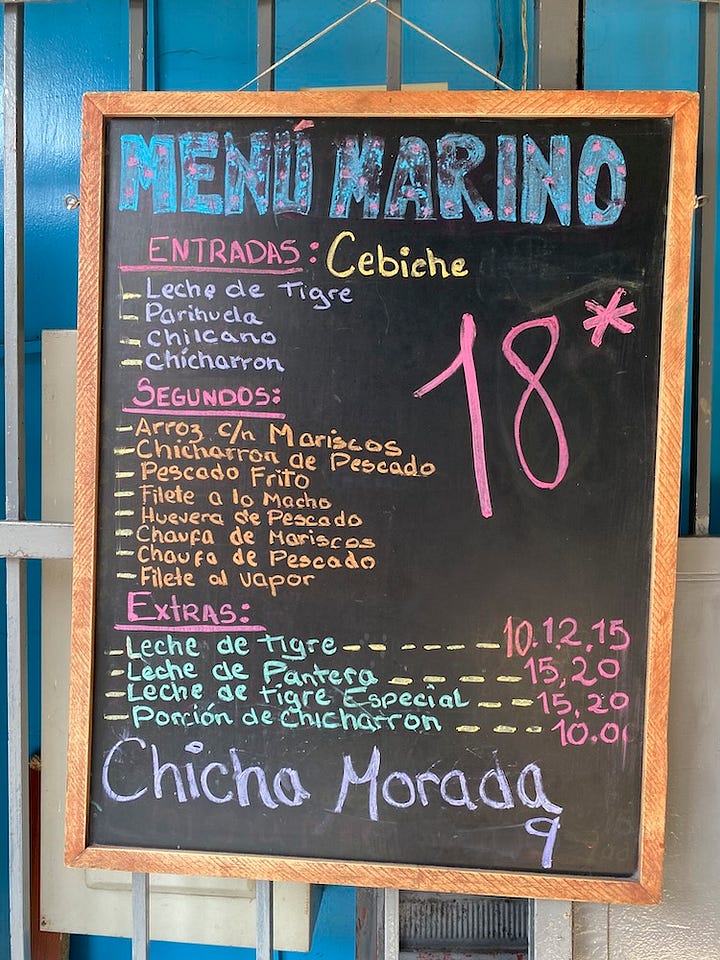 MENÚ MARINO
ENTRADAS: Cebiche
- Leche de Tigre
- Parihuela
- Chilcano
- Chicharron
18*
SEGUNDOS:
- Arroz c/n Mariscos
- Chicharron de Pescado
- Pescado Frito
- Filete a lo Macho
- Huevera de Pescado
- Chaufa de Mariscos
- Chaufa de Pescado
- Filete al vapor
EXTRAS:
- Leche de Tigre - - - - - - 10.12.15
- Leche de Pantera - - - - - 15,20
- Leche de tigre Especial - - 15,20
- Porción de Chicharron - - - 10.00
Chicha Morada
9